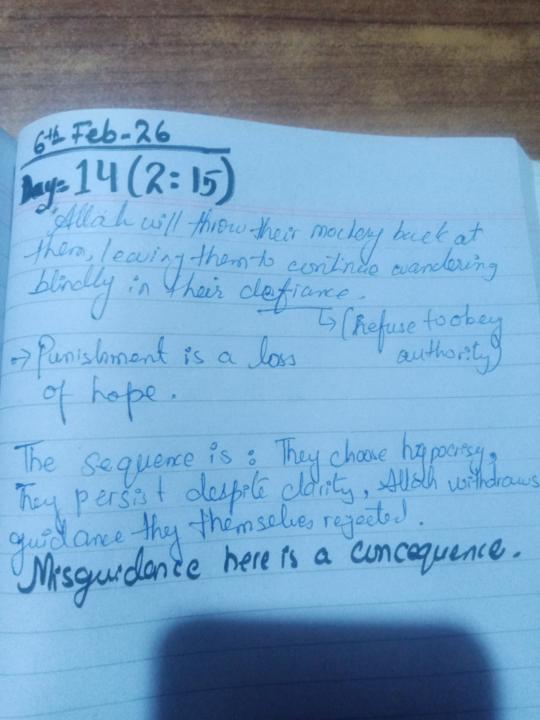 6th Feb-26
Day= 14 (2:15)
"Allah will throw their mockery back at
them, leaving them to continue wandering
blindly in their defiance.
↳ (Refuse to obey
authority)
→ Punishment is a loss
of hope.
The sequence is: They choose hypocrisy,
They persist despite clarity, Allah withdraws
guidance they themselves rejected.
Misguidance here is a concequence.